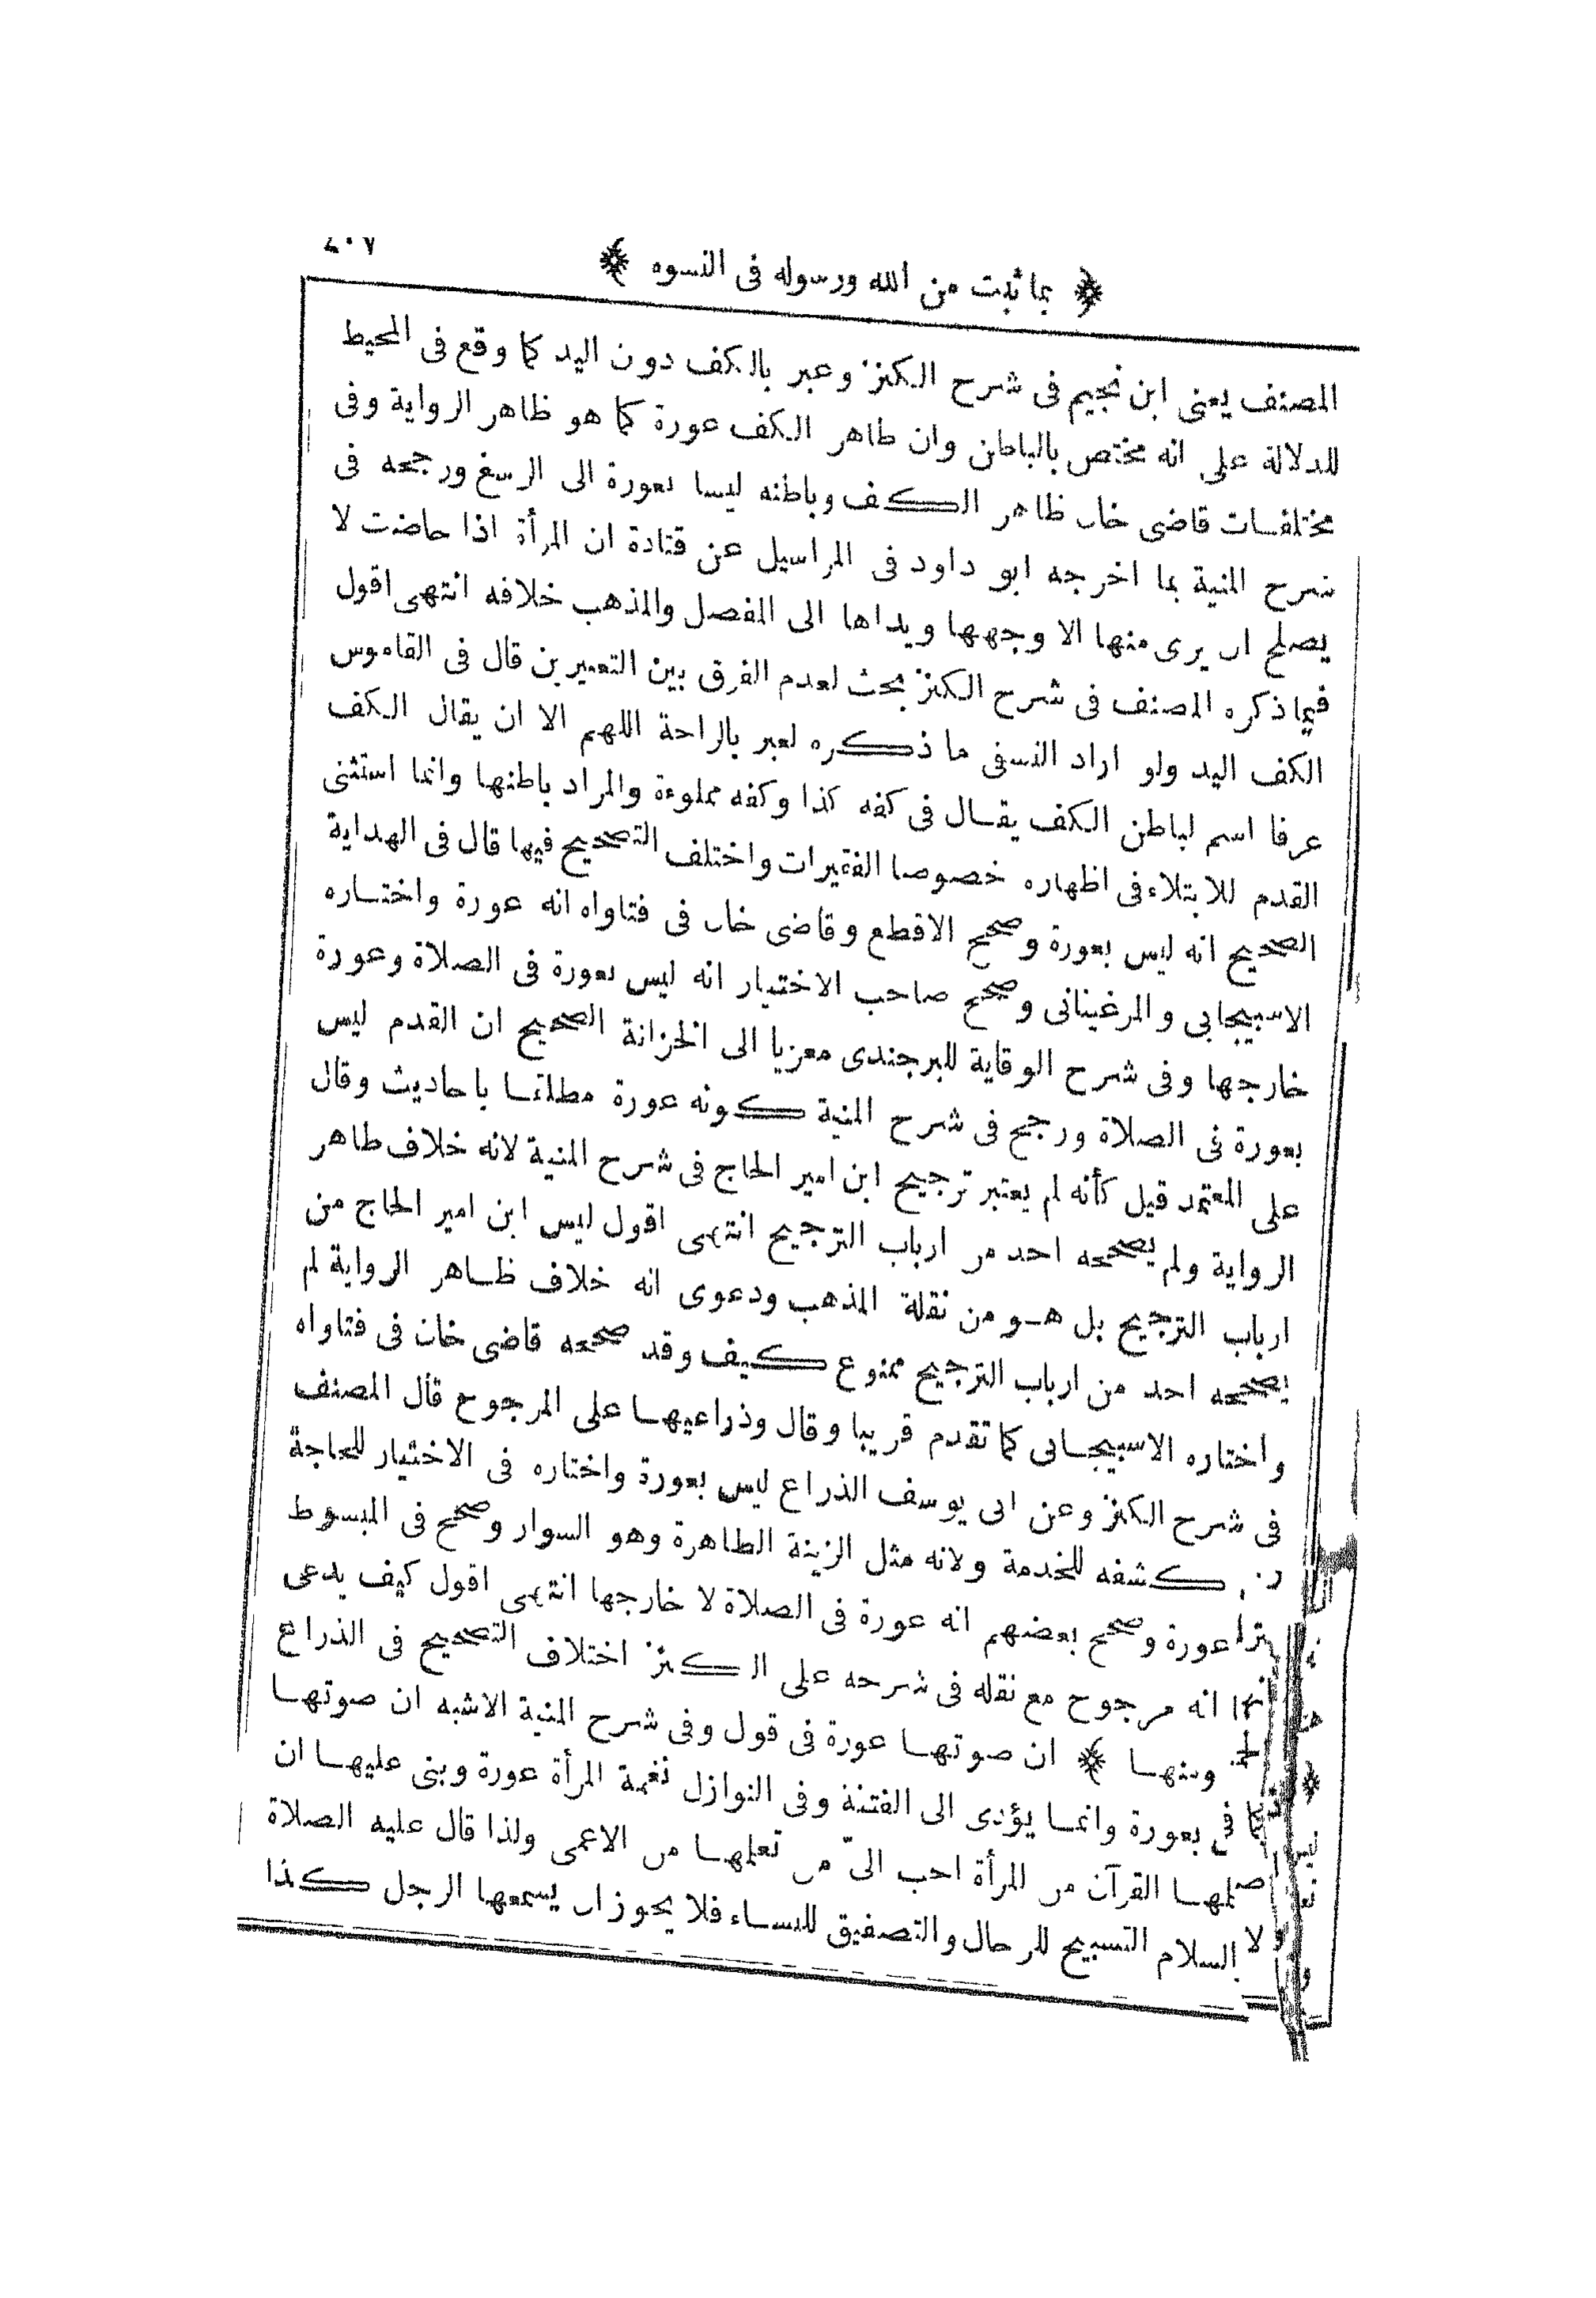 ﴿ بما ثبت من الله ورسوله فى النسوه ﴾ ٤٠٧
المصنف يعنى ابن نجيم فى شرح الكنز وعبر بالكف دون اليد كما وقع فى المحيط
للدلالة على انه مختص بالباطن وان ظاهر الكف عورة كما هو ظاهر الرواية وفى
مختلفات قاضى خان ظاهر الكف وباطنه ليسا بعورة الى الرسغ ورجحه فى
شرح المنية بما اخرجه ابو داود فى المراسيل عن قتادة ان المرأة اذا حاضت لا
يصلح ان يرى منها الا وجهها ويداها الى المفصل والمذهب خلافه انتهى اقول
فيما ذكره المصنف فى شرح الكنز بحث لعدم الفرق بين التعبيرين قال فى القاموس
الكف اليد ولو اراد النسفى ما ذكره لعبر بالراحة اللهم الا ان يقال الكف
عرفا اسم لباطن الكف يقال فى كفه كذا وكفه مملوءة والمراد باطنها وانما استثنى
القدم للابتلاء فى اظهاره خصوصا الفقيرات واختلف التصحيح فيها قال فى الهداية
الصحيح انه ليس بعورة وصحح الاقطع وقاضى خان فى فتاواه انه عورة واختاره
الاسبيجابى والمرغينانى وصحح صاحب الاختيار انه ليس بعورة فى الصلاة وعورة
خارجها وفى شرح الوقاية للبرجندى معزيا الى الخزانة الصحيح ان القدم ليس
بعورة فى الصلاة ورجح فى شرح المنية كونه عورة مطلقا باحاديث وقال
على المعتمد قيل كأنه لم يعتبر ترجيح ابن امير الحاج فى شرح المنية لانه خلاف ظاهر
الرواية ولم يصححه احد من ارباب الترجيح انتهى اقول ليس ابن امير الحاج من
ارباب الترجيح بل هو من نقلة المذهب ودعوى انه خلاف ظاهر الرواية لم
يصححه احد من ارباب الترجيح ممنوع كيف وقد صححه قاضى خان فى فتاواه
واختاره الاسبيجابى كما تقدم قريبا وقال وذراعيها على المرجوح قال المصنف
فى شرح الكنز وعن ابى يوسف الذراع ليس بعورة واختاره فى الاختيار للحاجة
كشفه للخدمة ولانه مثل الزينة الظاهرة وهو السوار وصحح فى المبسوط
عورة وصحح بعضهم انه عورة فى الصلاة لا خارجها انتهى اقول كيف يدعى
انه مرجوح مع نقله فى شرحه على الكنز اختلاف التصحيح فى الذراع
﴿ ومنها ﴾ ان صوتها عورة فى قول وفى شرح المنية الاشبه ان صوتها
ليس بعورة وانما يؤدى الى الفتنة وفى النوازل نغمة المرأة عورة وبنى عليها ان
القرآن من المرأة احب الىّ من تعلمها من الاعمى ولذا قال عليه الصلاة
والسلام التسبيح للرجال والتصفيق للنساء فلا يجوز ان يسمعها الرجل كذا